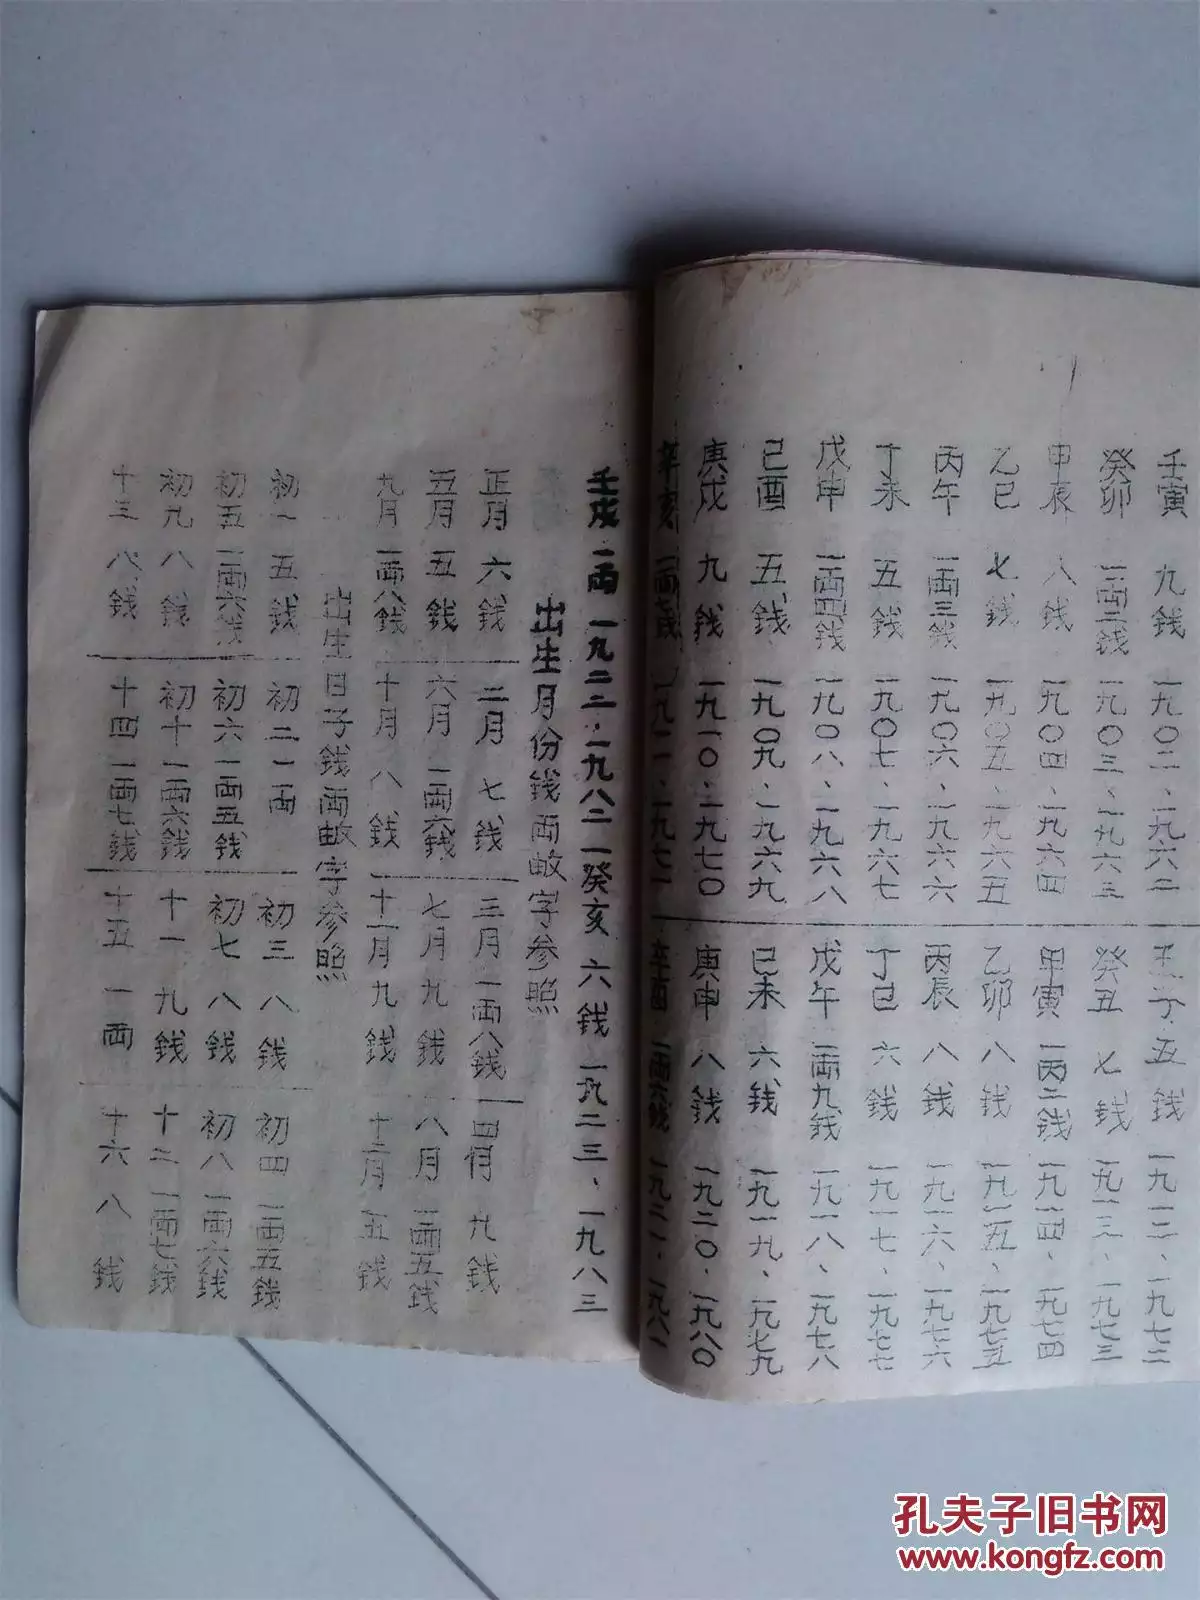 壬寅 九銭 一九〇二、一九六二 壬子 五銭 一九一二、一九七二
癸卯 一両二銭 一九〇三、一九六三 癸丑 七銭 一九一三、一九七三
甲辰 八銭 一九〇四、一九六四 甲寅 一丙二銭 一九一四、一九七四
乙巳 七銭 一九〇五、一九六五 乙卯 八銭 一九一五、一九七五
丙午 一両三銭 一九〇六、一九六六 丙辰 八銭 一九一六、一九七六
丁未 五銭 一九〇七、一九六七 丁巳 六銭 一九一七、一九七七
戊申 一両四銭 一九〇八、一九六八 戊午 一両九銭 一九一八、一九七八
己酉 五銭 一九〇九、一九六九 已未 六銭 一九一九、一九七九
庚戌 九銭 一九一〇、一九七〇 庚申 八銭 一九二〇、一九八〇
辛亥 一両七銭 一九一一、一九七一 辛酉 一両六銭 一九二一、一九八一
壬戌 一両 一九二二、一九八二 一癸亥 六銭 一九二三、一九八三
出生月份銭両畝字参照
正月 六銭 二月 七銭 三月 一両八銭 四月 九銭
五月 五銭 六月 一両六銭 七月 九銭 八月 一両五銭
九月 一両八銭 十月 八銭 十一月 九銭 十二月 五銭
出生日子銭両畝字参照
初一 五銭 初二 一両 初三 八銭 初四 一両五銭
初五 一両六銭 初六 一両五銭 初七 八銭 初八 一両六銭
初九 八銭 初十 一両六銭 十一 九銭 十二 一両七銭
十三 八銭 十四 一両七銭 十五 一両 十六 八銭
孔夫子旧书网
www.kongfz.com